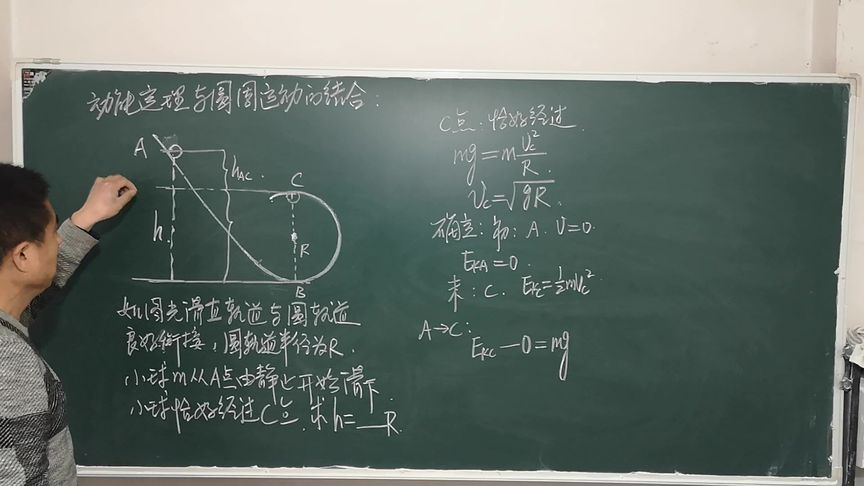 动能定理与圆周运动的结合：
A
hAC.
C
h
R
B
如图光滑直轨道与圆轨道
良好衔接，圆轨道半径为R.
小球m从A点由静止开始滑下.
小球恰好经过C点.求h=__R.
C点：恰好经过.
mg=m vC²/R.
VC=√gR.
确定：初：A. V=0.
EKA=0.
末：C. EKC=½mVC²
A→C：
EKC-0=mg